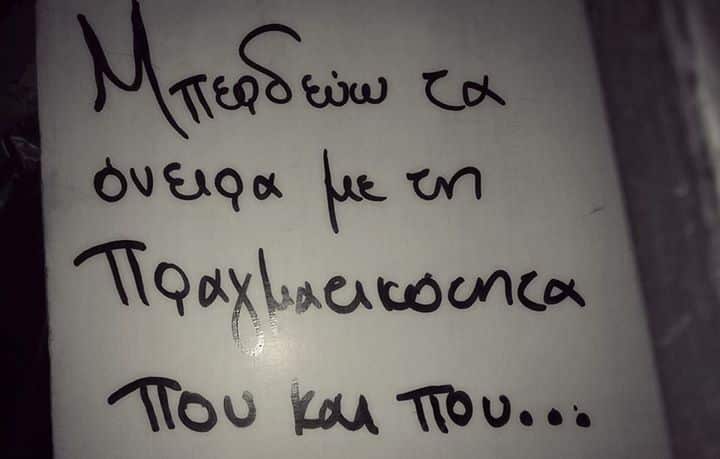 Μπερδεύω τα
όνειρα με τη
Πραγματικότητα
που και που...